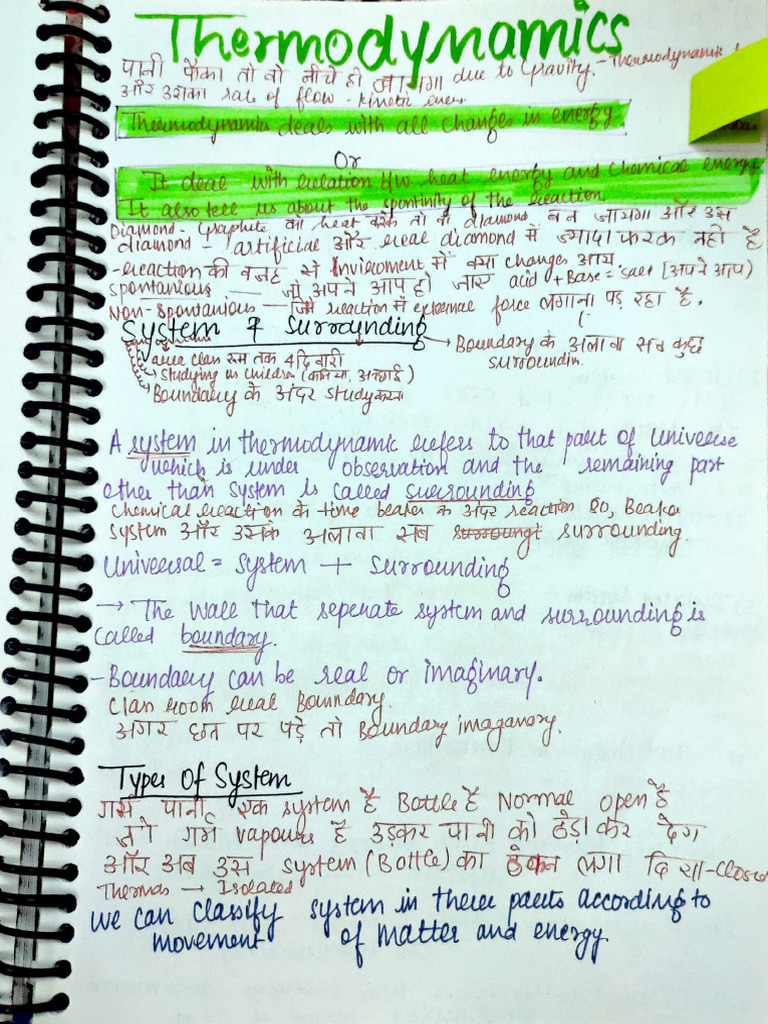 Thermodynamics
पानी फेंका तो वो नीचे ही जायगा due to Gravity. - Thermodynamic
और उसका rate of flow - kinetic ener
Thermodynamic deals with all changes in energy
Or
It deal with relation b/w heat energy and chemical energy
It also tell us about the spontinity of the Reaction.
Diamond - Graphite को heat करके तो वो diamond बन जायगा और उस
diamond - artificial और real diamond में ज्यादा फरक नहीं है
- reaction की वजह से Inviroment में क्या changes आय.
spontanious - जो अपने आप हो जाए acid + Base = salt [अपने आप)
Non-spontanious - जिस reaction में external force लगाना पड़ रहा है.
System & Surrounding
→ Boundary के अलावा सब कुछ
surroundin.
area clan रूम तक 4 दिवारी
studying on children (कमिया, अच्छाई)
Boundary के अंदर study करना
A system in thermodynamic refers to that part of Universe
which is under observation and the remaining part
other than system is called surrounding
Chemical reaction के time beaker के अंदर reaction so, Beaker
system और उसके अलावा सब surroungi surrounding.
Universal = system + surrounding
→ The wall that seperate system and surrounding is
called boundary.
- Boundary can be real or imaginary.
Clan room real Bounndary.
अगर छत पर पड़े तो Boundary imaganary.
Types Of System
गर्म पानी एक system है Bottle है Normal open है
तो गर्म vapours है उड़कर पानी को ठंडा कर देगा
और अब उस system (Bottle) का ढक्कन लगा दिया - Closed
Thermas → Isolated
we can classify system in three parts according to
movement of matter and energy.